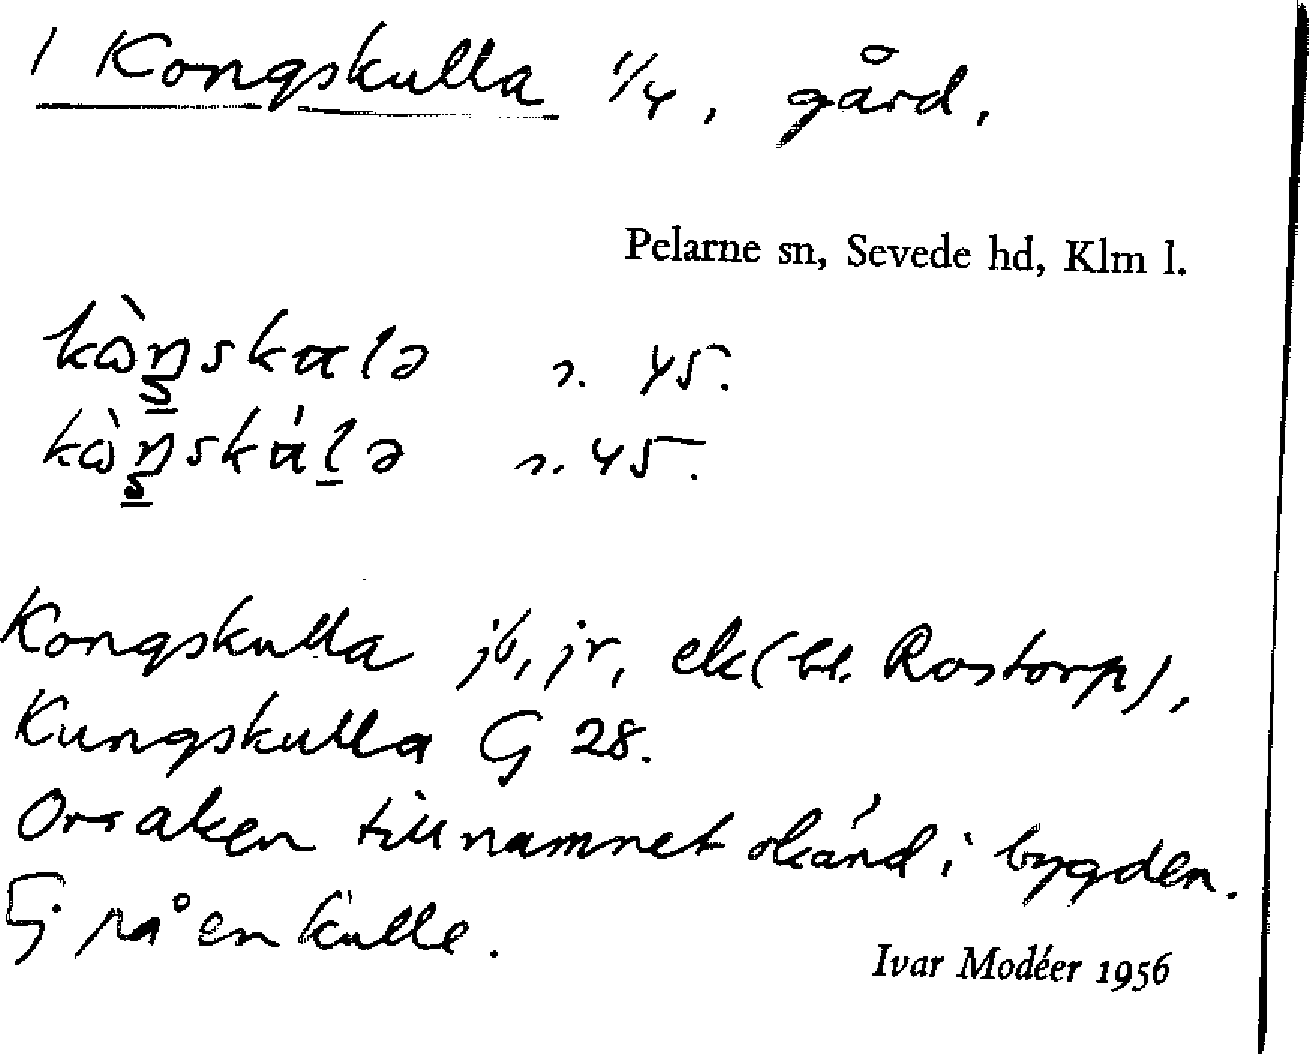 1 Kongskulla 1/4, gård.
Pelarne sn, Sevede hd, Klm l.
45.
45.
Kongskulla jb, jr, ek (bl. Rostorp),
Kungskulla G 28.
Orsaken till namnet okänd i bygden.
Ej på en kulle.
Ivar Modéer 1956